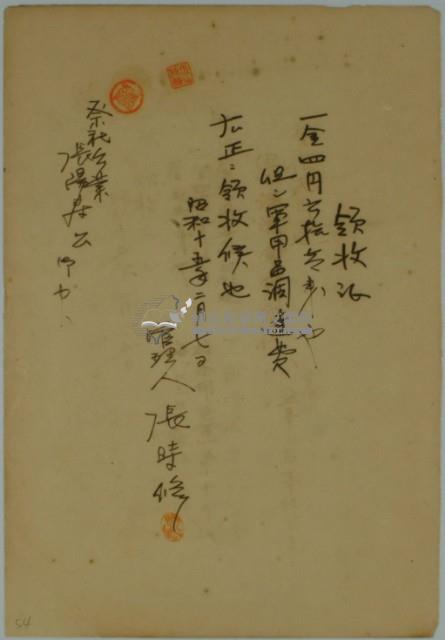 領收証
一金四円六拾六銭也
但シ軍甲圳調達費
右正ニ領收候也
昭和十五年二月七日
管理人 張時修
祭祀公業
張陽春公 御中
54